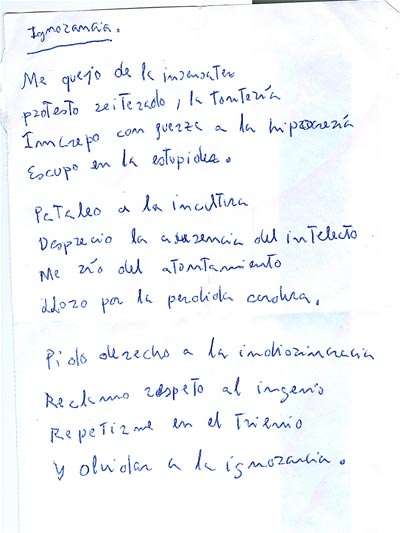 Ignorancia.
Me quejo de la insensatez
protesto reiterado, la tontería
Increpo con fuerza a la hipocresía
Escupo en la estupidez.
Pataleo a la incultura
Desprecio la ausencia del intelecto
Me río del atontamiento
Lloro por la perdida cordura.
Pido derecho a la indiosincracia
Reclamo respeto al ingenio
Repetirme en el trienio
Y olvidar a la ignorancia.